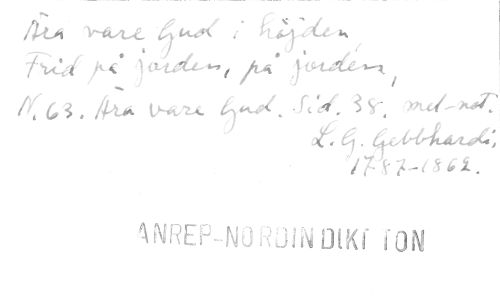 Ära vare Gud i höjden,
Frid på jorden, på jorden,
N. 63. Ära vare Gud. Sid. 38. mel-not.
L. G. Gebbhardi,
1787-1862.
ANREP-NORDIN DIKT TON